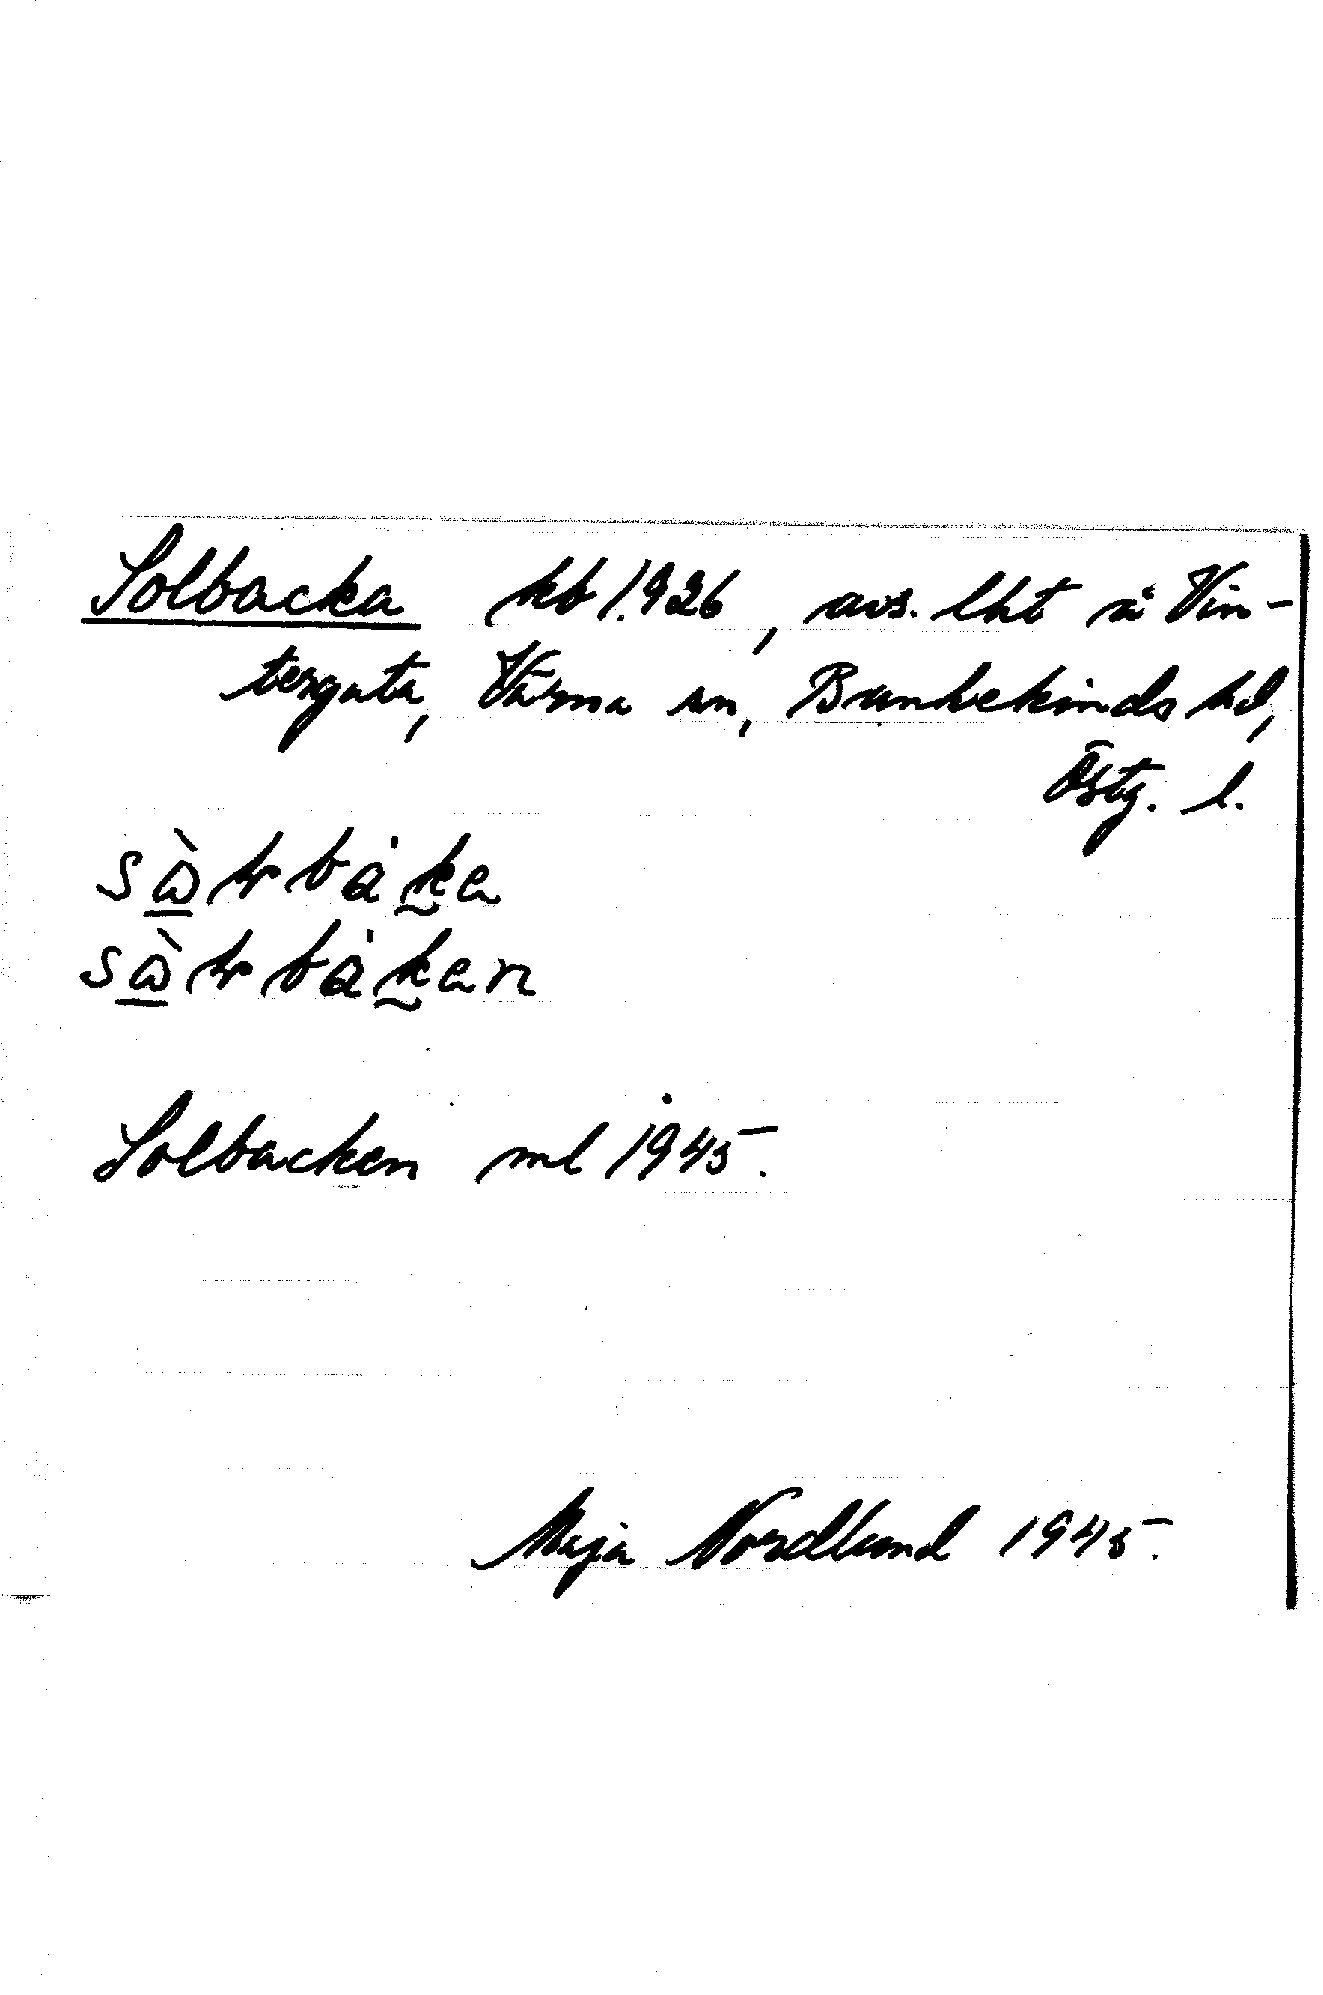 Solbacka kb 1926, avs. lht å Vin-
tergata, Vårma sn, Bankekinds hd,
Östg. l.
Solbacken ml 1945.
Maja Nordlund 1945.